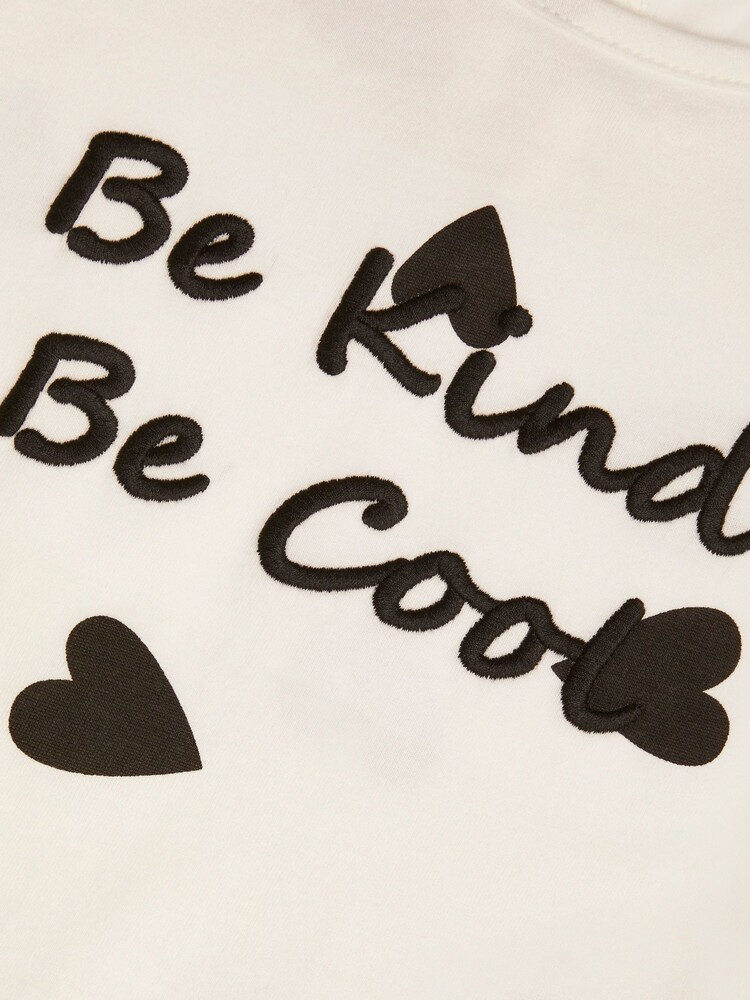 Be Kind
Be Cool